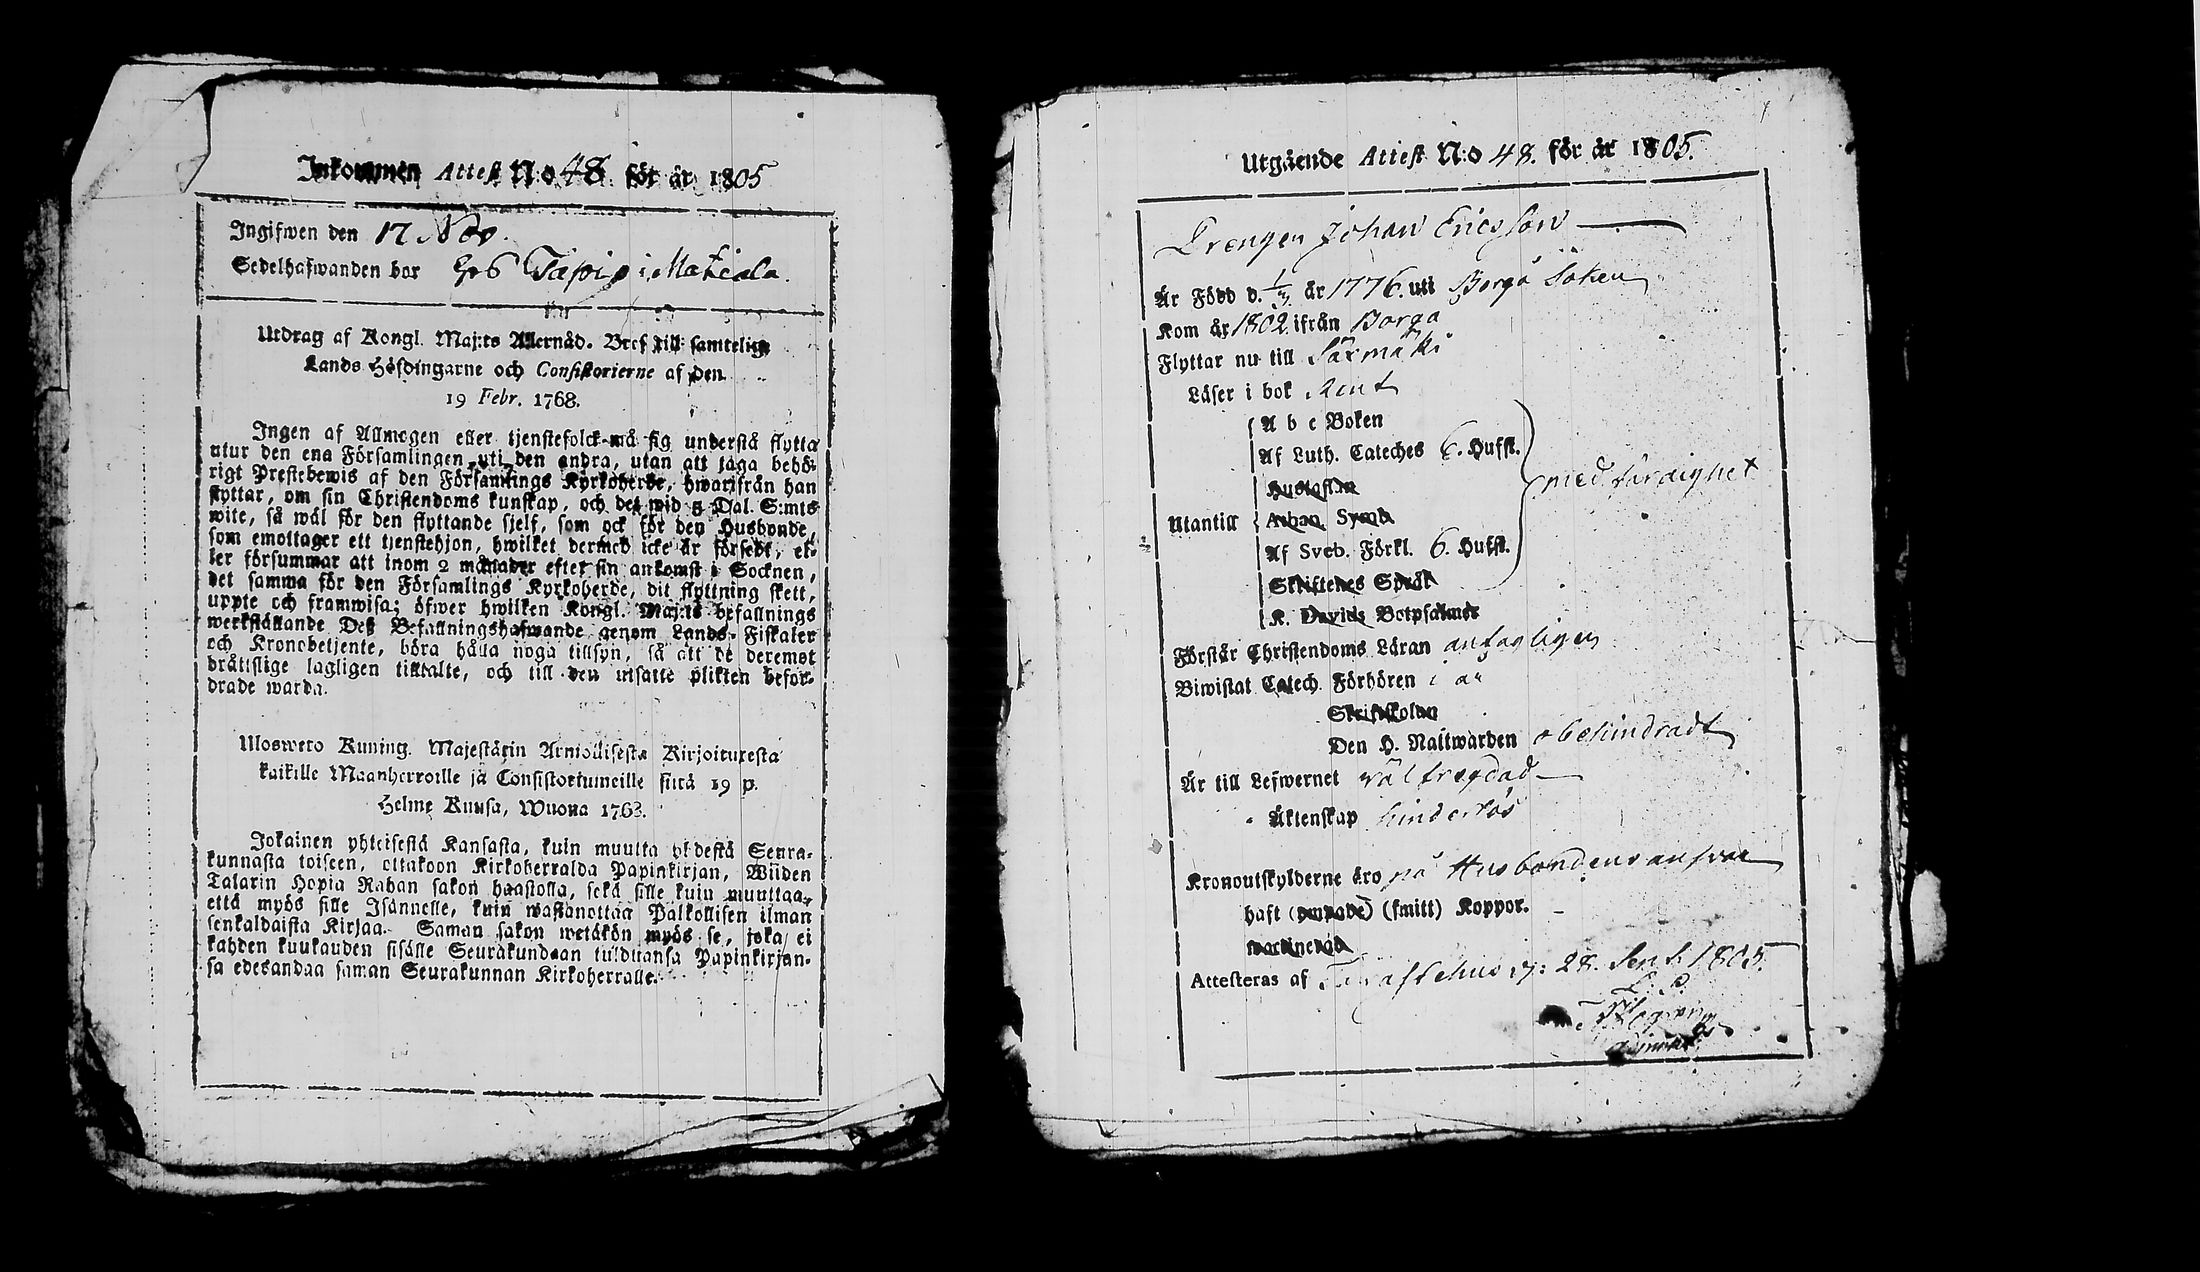 Inkommen Attest N:o 48. för år 1805
Ingifwen den 17 Nov.
Sedelhafwanden bor hos i Matiala.
Utdrag af Kongl. Maj:ts Allernåd. Bref till samtelige
Lands Höfdingarne och Consistorierne af den
19 Febr. 1768.
Ingen af Allmogen eller tjenstefolck må sig understå flytta
utur den ena Församlingen uti den andra, utan att taga behö-
rigt Prestebewis af den Församlings Kyrkoherde, hwarifrån han
flyttar, om sin Christendoms kunskap, och det wid 5 Dal. S:mts
wite, så wäl för den flyttande sjelf, som ock för den Husbonde,
som emottager ett tjenstehjon, hwilket dermed icke är försedt, el-
ler försummar att inom 2 månader efter sin ankomst i Socknen,
det samma för den Församlings Kyrkoherde, dit flyttning skett,
uppte och framwisa; öfwer hwilken Kongl. Maj:ts befallnings
werkställande Deß Befallningshafwande genom Lands-Fiskaler
och Kronobetjente, böra hålla noga tillsyn, så att de deremot
bråttslige lagligen tilltalte, och till den utsatte plikten befor-
drade warda.
Ulosweto Kuning. Majestätin Armollisesta Kirjoituxesta
kaikille Maanherroille ja Consistoriumeille siitä 19 p.
Helme Kuusa, Wuona 1768.
Jokainen yhteisestä Kansasta, kuin muutta yhdestä Seura-
kunnasta toiseen, ottakoon Kirkoherralda Papinkirjan, Wiiden
Talarin Hopia Rahan sakon haastolla, sekä sille kuin muuttaa,
että myös sille Isännelle, kuin wastanottaa Palkollisen ilman
senkaldaista Kirjaa. Saman sakon wetäkön myös se, joka ei
kahden kuukauden sisälle Seurakundaan tulduansa Papinkirjan-
sa edesandaa saman Seurakunnan Kirkoherralle.
Utgående Attest N:o 48. för år 1805.
Drengen Johan Ericsson
Är Född d. 1/3. år 1776. uti Borgå Soken
Kom år 1802 ifrån Borgå
Flyttar nu till Särmäki
Läser i bok Rent
A b c Boken
Af Luth. Cateches 6. Hufst.
Hustaflan
med färdighet
Utantill Athan. Symb.
Af Sveb. Förkl. 6. Hufst.
Skriftenes Språk
K. Davids Botpsalmer
Förstår Christendoms Läran antagligen
Biwistat Catech. Förhören i år
Skriftskolan
Den H. Nattwarden obehindradt
Är till Lefwernet wälfregdad
Äktenskap hinderlös
Kronoutskylderne äro på Husbondens answar
haft (ympade) (smitt) Koppor.
waccinerad
Attesteras af Tavastehus 28. Sept. 1805.